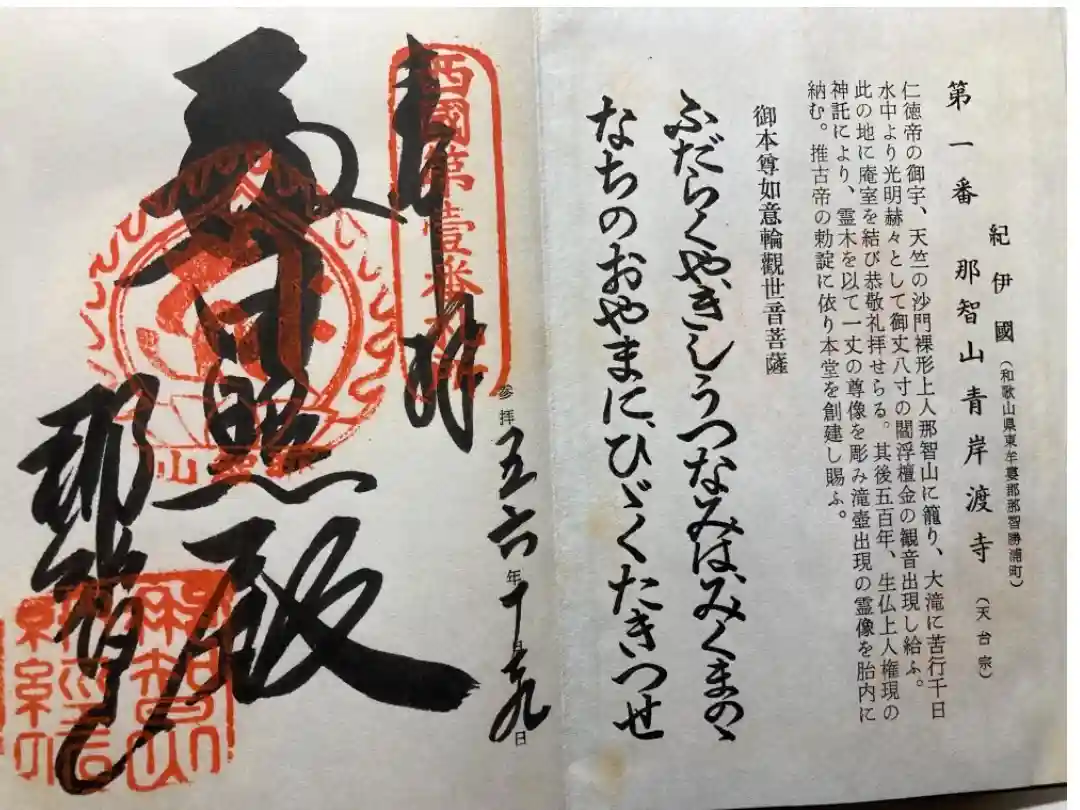 紀伊國（和歌山県東牟婁郡那智勝浦町）
第一番 那智山青岸渡寺（天台宗）
仁徳帝の御宇、天竺の沙門裸形上人那智山に籠り、大滝に苦行千日
水中より光明赫々として御丈八寸の閻浮檀金の観音出現し給ふ。
此の地に庵室を結び恭敬礼拝せらる。其後五百年、生仏上人権現の
神託により、霊木を以て一丈の尊像を彫み滝壺出現の霊像を胎内に
納む。推古帝の勅諚に依り本堂を創建し賜ふ。
御本尊如意輪觀世音菩薩
ふだらくやきしうつなみはみくまのゝ
なちのおやまに、ひゞくたきつせ
参拝五六年十月十九日
奉拝
西國第壹番札所
普照殿
那智山
那智山